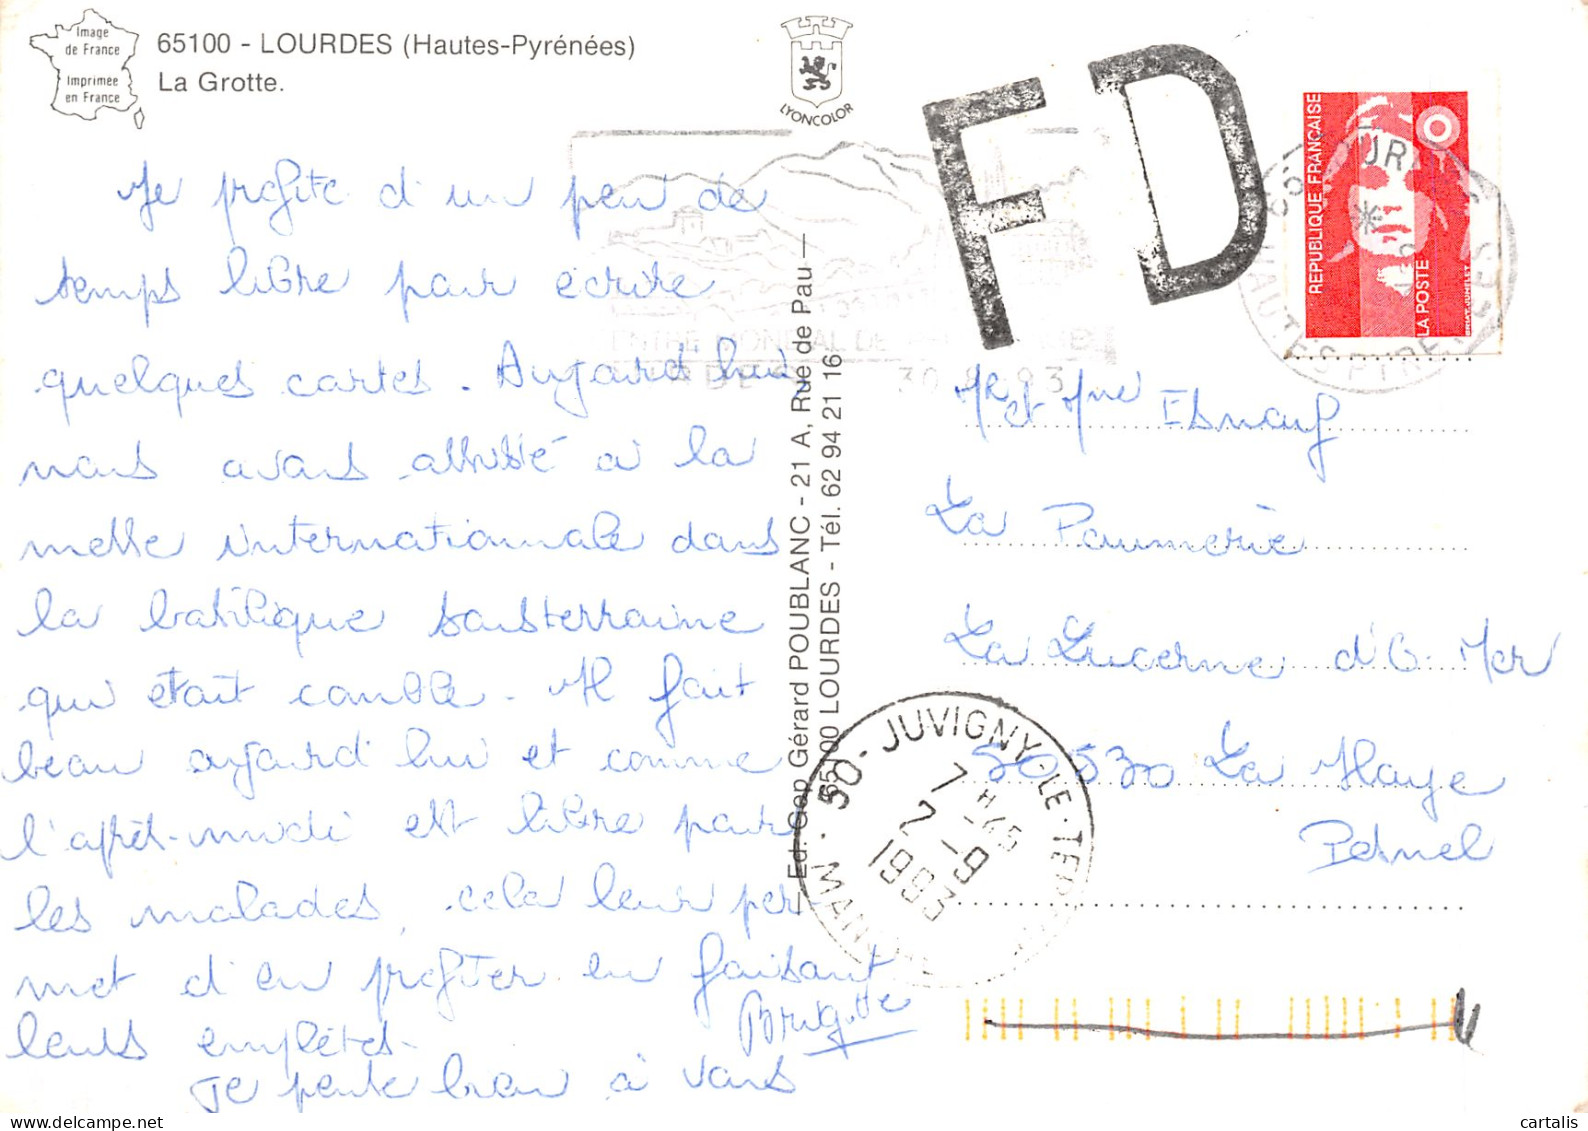 Image
de France
Imprimée
en France
65100 - LOURDES (Hautes-Pyrénées)
La Grotte.
LYONCOLOR
FD
REPUBLIQUE FRANÇAISE
LA POSTE
HAUTES PYRENEES
30 93
Je profite d'un peu de
temps libre pour écrire
quelques cartes. Aujourd'hui,
nous avons assisté à la
messe internationale dans
la basilique souterraine
qui était comble. Il fait
beau aujourd'hui et comme
l'après-midi est libre pour
les malades, cela leur per-
met d'en profiter en faisant
leurs emplêtes.
Brigitte
Je pense bien à vous
Ed. Cep Gérard POUBLANC - 21 A, Rue de Pau
65100 LOURDES - Tél. 62 94 21 16
Mr et Mme Esnouf
La Paumerie
La Lucerne d'O. Mer
50530 La Haye
Pesnel
50 - JUVIGNY-LE-TERTRE
7 H 45
2 - 9
1993
MANCHE